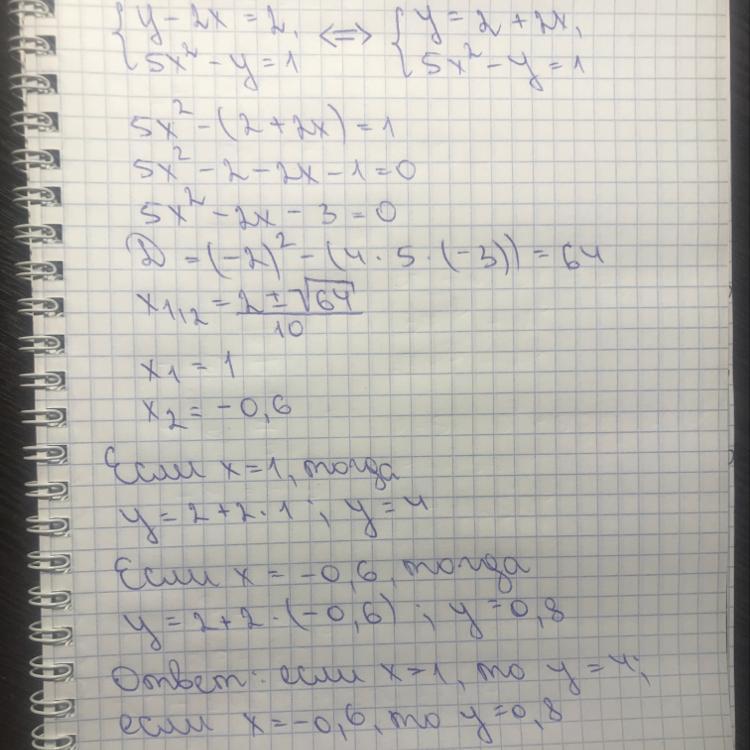 { y - 2x = 2, <=> { y = 2 + 2x,
{ 5x² - y = 1 { 5x² - y = 1
5x² - (2 + 2x) = 1
5x² - 2 - 2x - 1 = 0
5x² - 2x - 3 = 0
D = (-2)² - (4 · 5 · (-3)) = 64
x1,2 = 2 ± √64
10
x1 = 1
x2 = -0,6
Если x = 1, тогда
y = 2 + 2 · 1 ; y = 4
Если x = -0,6, тогда
y = 2 + 2 · (-0,6) ; y = 0,8
Ответ: если x = 1, то y = 4;
если x = -0,6, то y = 0,8